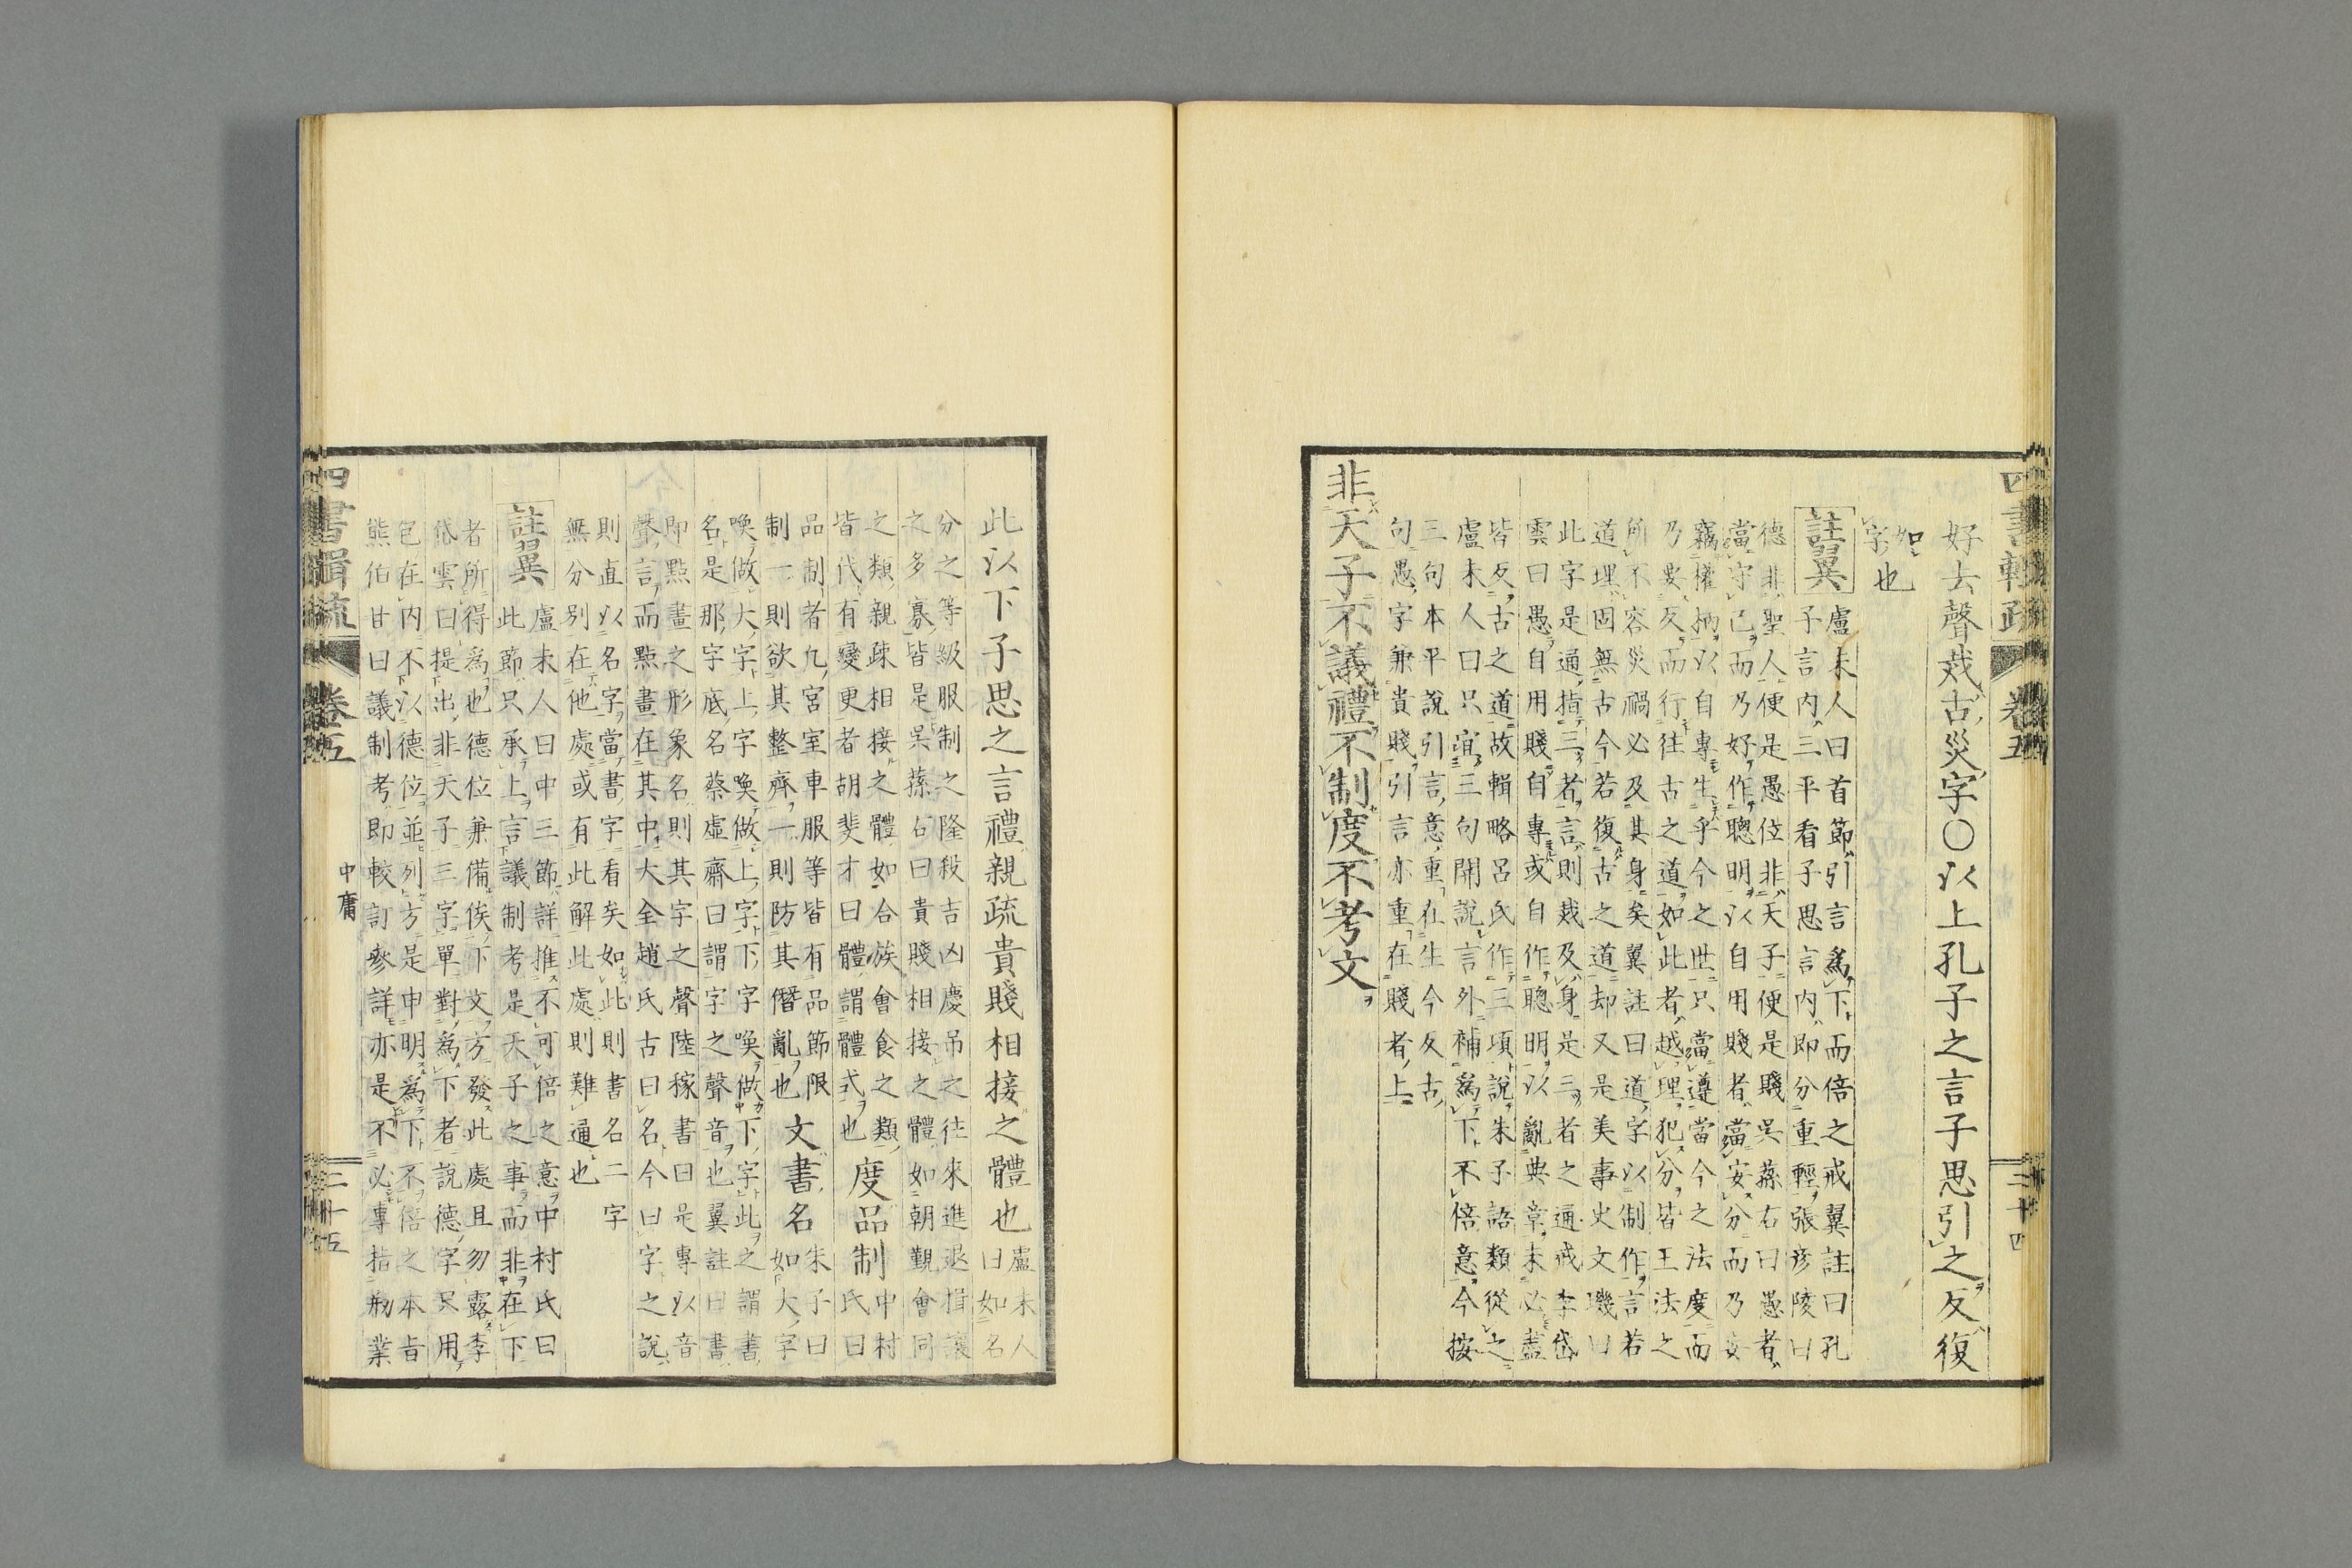 四書輯疏 卷五 三十四
好去聲烖古災字○以上孔子之言子思引之反復
如
字也
註翼
盧未人曰首節引言爲下而倍之戒翼註曰孔
子言内三平看子思言内即分重輕張彦陵曰
德非聖人便是愚位非天子便是賤吳蓀右曰愚者
當守己而乃好作聰明以自用賤者當安分而乃妄
竊權柄以自專生乎今之世只當遵當今之法度而
乃要反而行往古之道如此者越理犯分皆王法之
所不容災禍必及其身矣翼註曰道字以制作言若
道理固無古今若復古之道却又是美事史文璣曰
此字是通指三者言則烖及身是三者之通戒李岱
雲曰愚自用賤自專或自作聰明以亂典章未必盡
皆反古之道故輯略呂氏作三項說朱子語類從之
盧未人曰只宜三句開說言外補爲下不倍意今按
三句本平說引言意重在生今反古
句愚字兼貴賤引言亦重在賤者上
非天子不議禮不制度不考文
此以下子思之言禮親疏貴賤相接之體也
盧未人
曰如名
分之等級服制之隆殺吉凶慶吊之往來進退揖讓
之多寡皆是吳蓀右曰貴賤相接之體如朝覲會同
之類親疎相接之體如合族會食之類
皆代有變更者胡斐才曰體謂體式也
度品制
中村
氏曰
品制者凡宮室車服等皆有品節限
制一則欲其整齊一則防其僭亂也
文書名
朱子曰
如大字
喚做大字上字喚做上字下字喚做下字此之謂書
名是那字底名蔡虛齋曰謂字之聲音也翼註曰書
即點畫之形象名則其字之聲陸稼書曰是專以音
聲言而點畫在其中大全趙氏古曰名今曰字之說
則直以名字當書字看矣如此則書名二字
無分別在他處或有此解此處則難通也
註翼
盧未人曰中三節詳推不可倍之意中村氏曰
此節只承上言議制考是天子之事而非在下
者所得爲也德位兼備俟下文方發此處且勿露李
岱雲曰提出非天子三字單對爲下者說德字只用
包在内不以德位並列方是申明爲下不倍之本旨
熊伯甘曰議制考即較訂參詳亦是不必專指刱業
四書輯疏 卷五 中庸 三十五